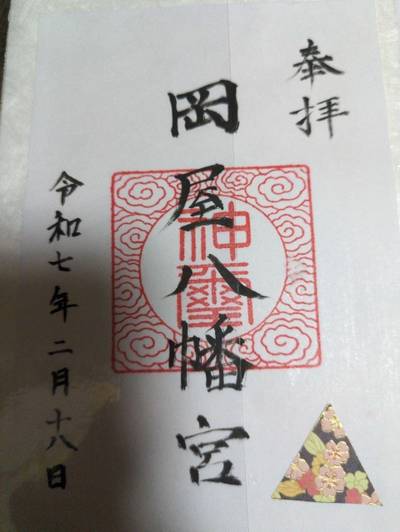 奉拝
岡屋八幡宮
令和七年二月十八日